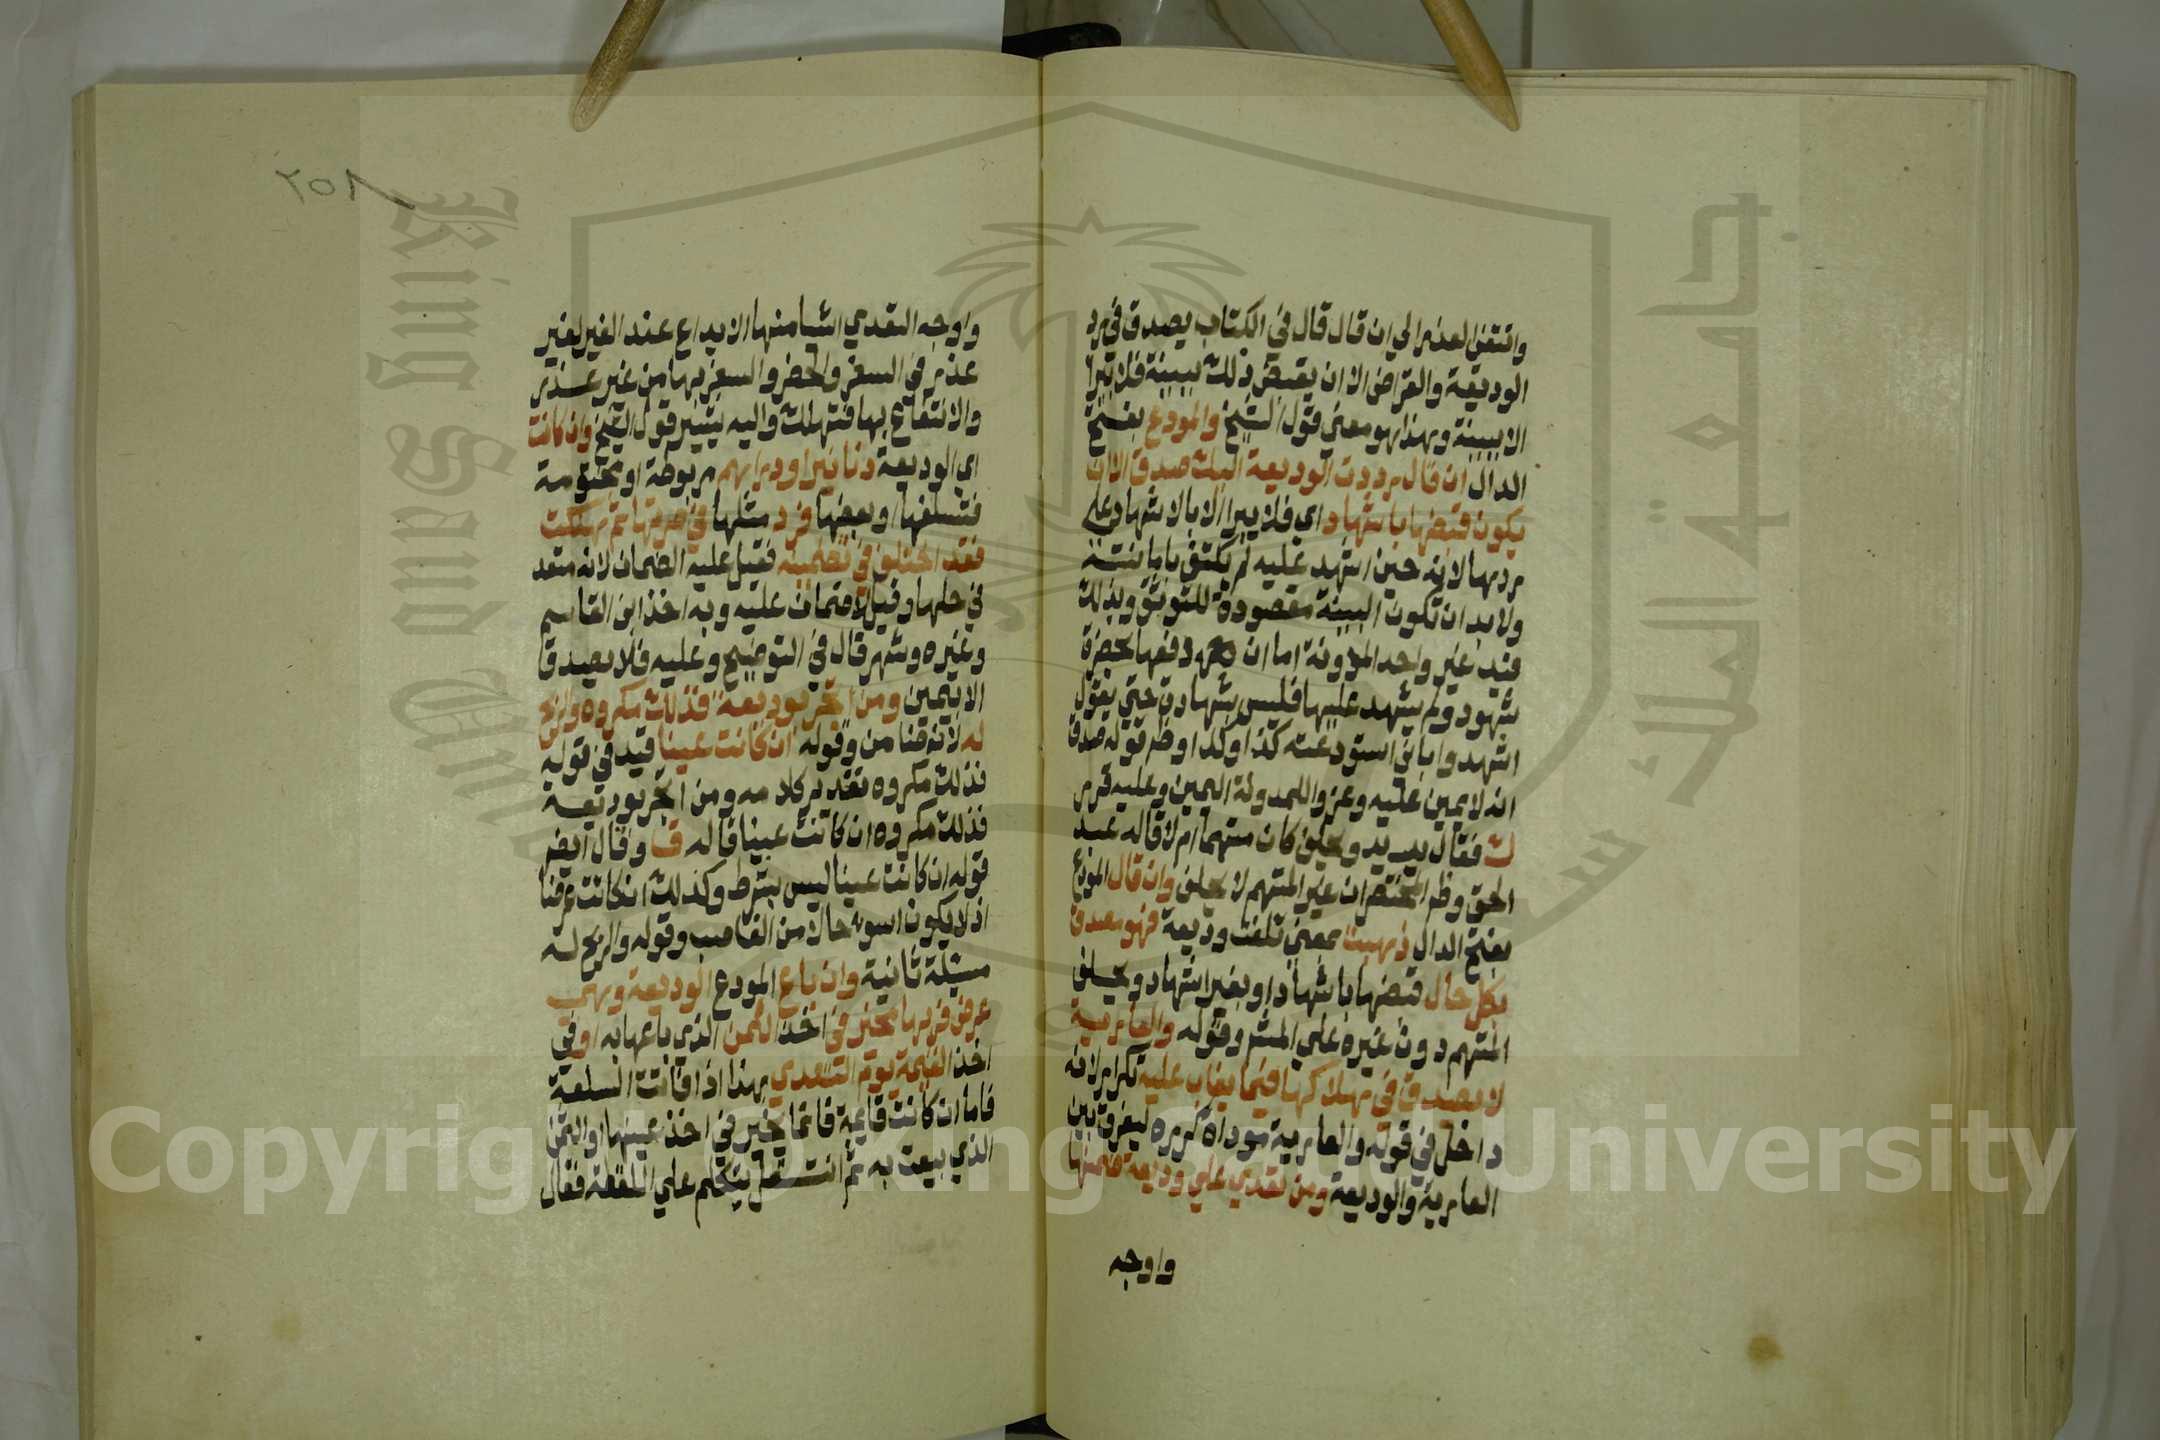 وانتقي لعذر الي ان قال قال في الكتاب يصدق في رد
الوديعة والقراض الا ان يقبض ذلك ببينة فلا يبرا
الا ببينة وهذا هو معني قول الشيخ والمودع بفتح
الدال ان قال رددت الوديعة اليك صدق الا ان
يكون قبضها باشهاد اي فلا يبرا الا بالاشهاد علي
ردها لانه حين اشهد عليه لم يكتف بامانته
ولا بد ان تكون البينة مقصودة للتوثق وبذلك
قيد غير واحد المدونة اما ان دفعها بحضرة
شهود ولم يشهد عليها فليس بشهادة حتي يقول
اشهدوا باني استودعته كذا وكذا وظر قوله صدق
انه لا يمين عليه وعزو اللمدونة اليمين وعليه قرر
ك فقال بيديه ويحلف كان متهما ام لا قاله عبد
الحق وظر المختصر ان غير المتهم لا يحلف وان قال المودع
بفتح الدال ذهبت بمعني تلفت وديعة فهو مصدق
بكل حال قبضها باشهاد او بغير اشهاد ويحلف
المتهم دون غيره علي المشر وقوله والعارية
لا يصدق في هلاكها فيما يغاب عليه تكرار لانه
داخل في قوله والعارية موداة كرره ليفرق بين
العارية والوديعة ومن تعدي علي وديعة ضمنها
واوجه
٢٥٨
واوجه التعدي اشيا منها الايداع عند الغير لغير
عذر في السفر والحضر والسفر بها من غير عذر
والانتفاع بها فتهلك واليه يشير قول الشيخ وان كانت
اي الوديعة دنانير او دراهم مربوطة او مختومة
فتسلفها او بعضها فرد مثلها في صرتها ثم هلكت
فقد اختلف في تضمينه فقيل عليه الضمان لانه متعد
في حلها وقيل لا ضمان عليه وبه اخذ ابن القاسم
وغيره وشهر قال في التوضيح وعليه فلا يصدق
الا بيمين ومن اتجر بوديعة فذلك مكروه والربح
له لانه ضامن وقوله ان كانت عينا قيد في قوله
فذلك مكروه تقدير كلامه ومن اتجر بوديعة
فذلك مكروه ان كانت عينا قاله ق وقال ايضر
قوله ان كانت عينا ليس بشرط وكذلك ان كانت عرضا
اذ لا يكون اسوء حالا من الغاصب وقوله والربح له
مسئلة ثانية وان باع المودع الوديعة وهي
عرض فربها مخير في اخذ الثمن الذي باعها به او في
اخذ القيمة يوم التعدي هذا اذا فاتت السلعة
فاما ان كانت قايمة فانما يخير في اخذ عينها او الثمن
الذي بيعت به ثم انتقل يتكلم علي اللقطة فقال
Copyright © King Saud University